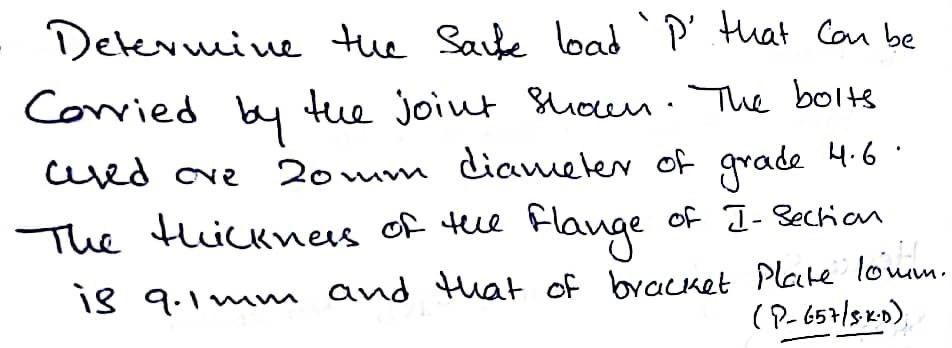 Determine the Safe load 'P' that Can be
Carried by the joint Shown. The bolts
used are 20mm diameter of grade 4.6.
The thickness of the flange of I-Section
is 9.1mm and that of bracket Plate 10mm.
(P-657/S.K.D)